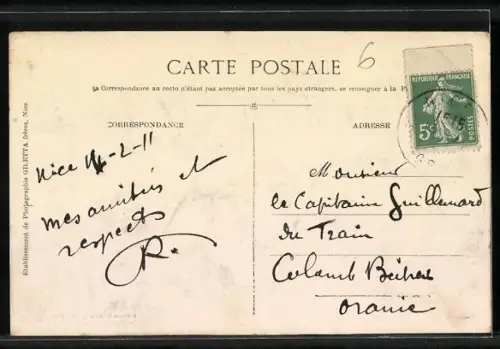 6
CARTE POSTALE
La Correspondance au recto n'étant pas acceptée par tous les pays étrangers, se renseigner à la
CORRESPONDANCE
ADRESSE
REPUBLIQUE FRANÇAISE
5c
POSTES
Nice 14-2-11
mes amitiés et
respects
R.
Monsieur
le Capitaine Guillemard
du Train
Colomb Béchar
Oranie
Etablissement de Photographie GILETTA frères, Nice